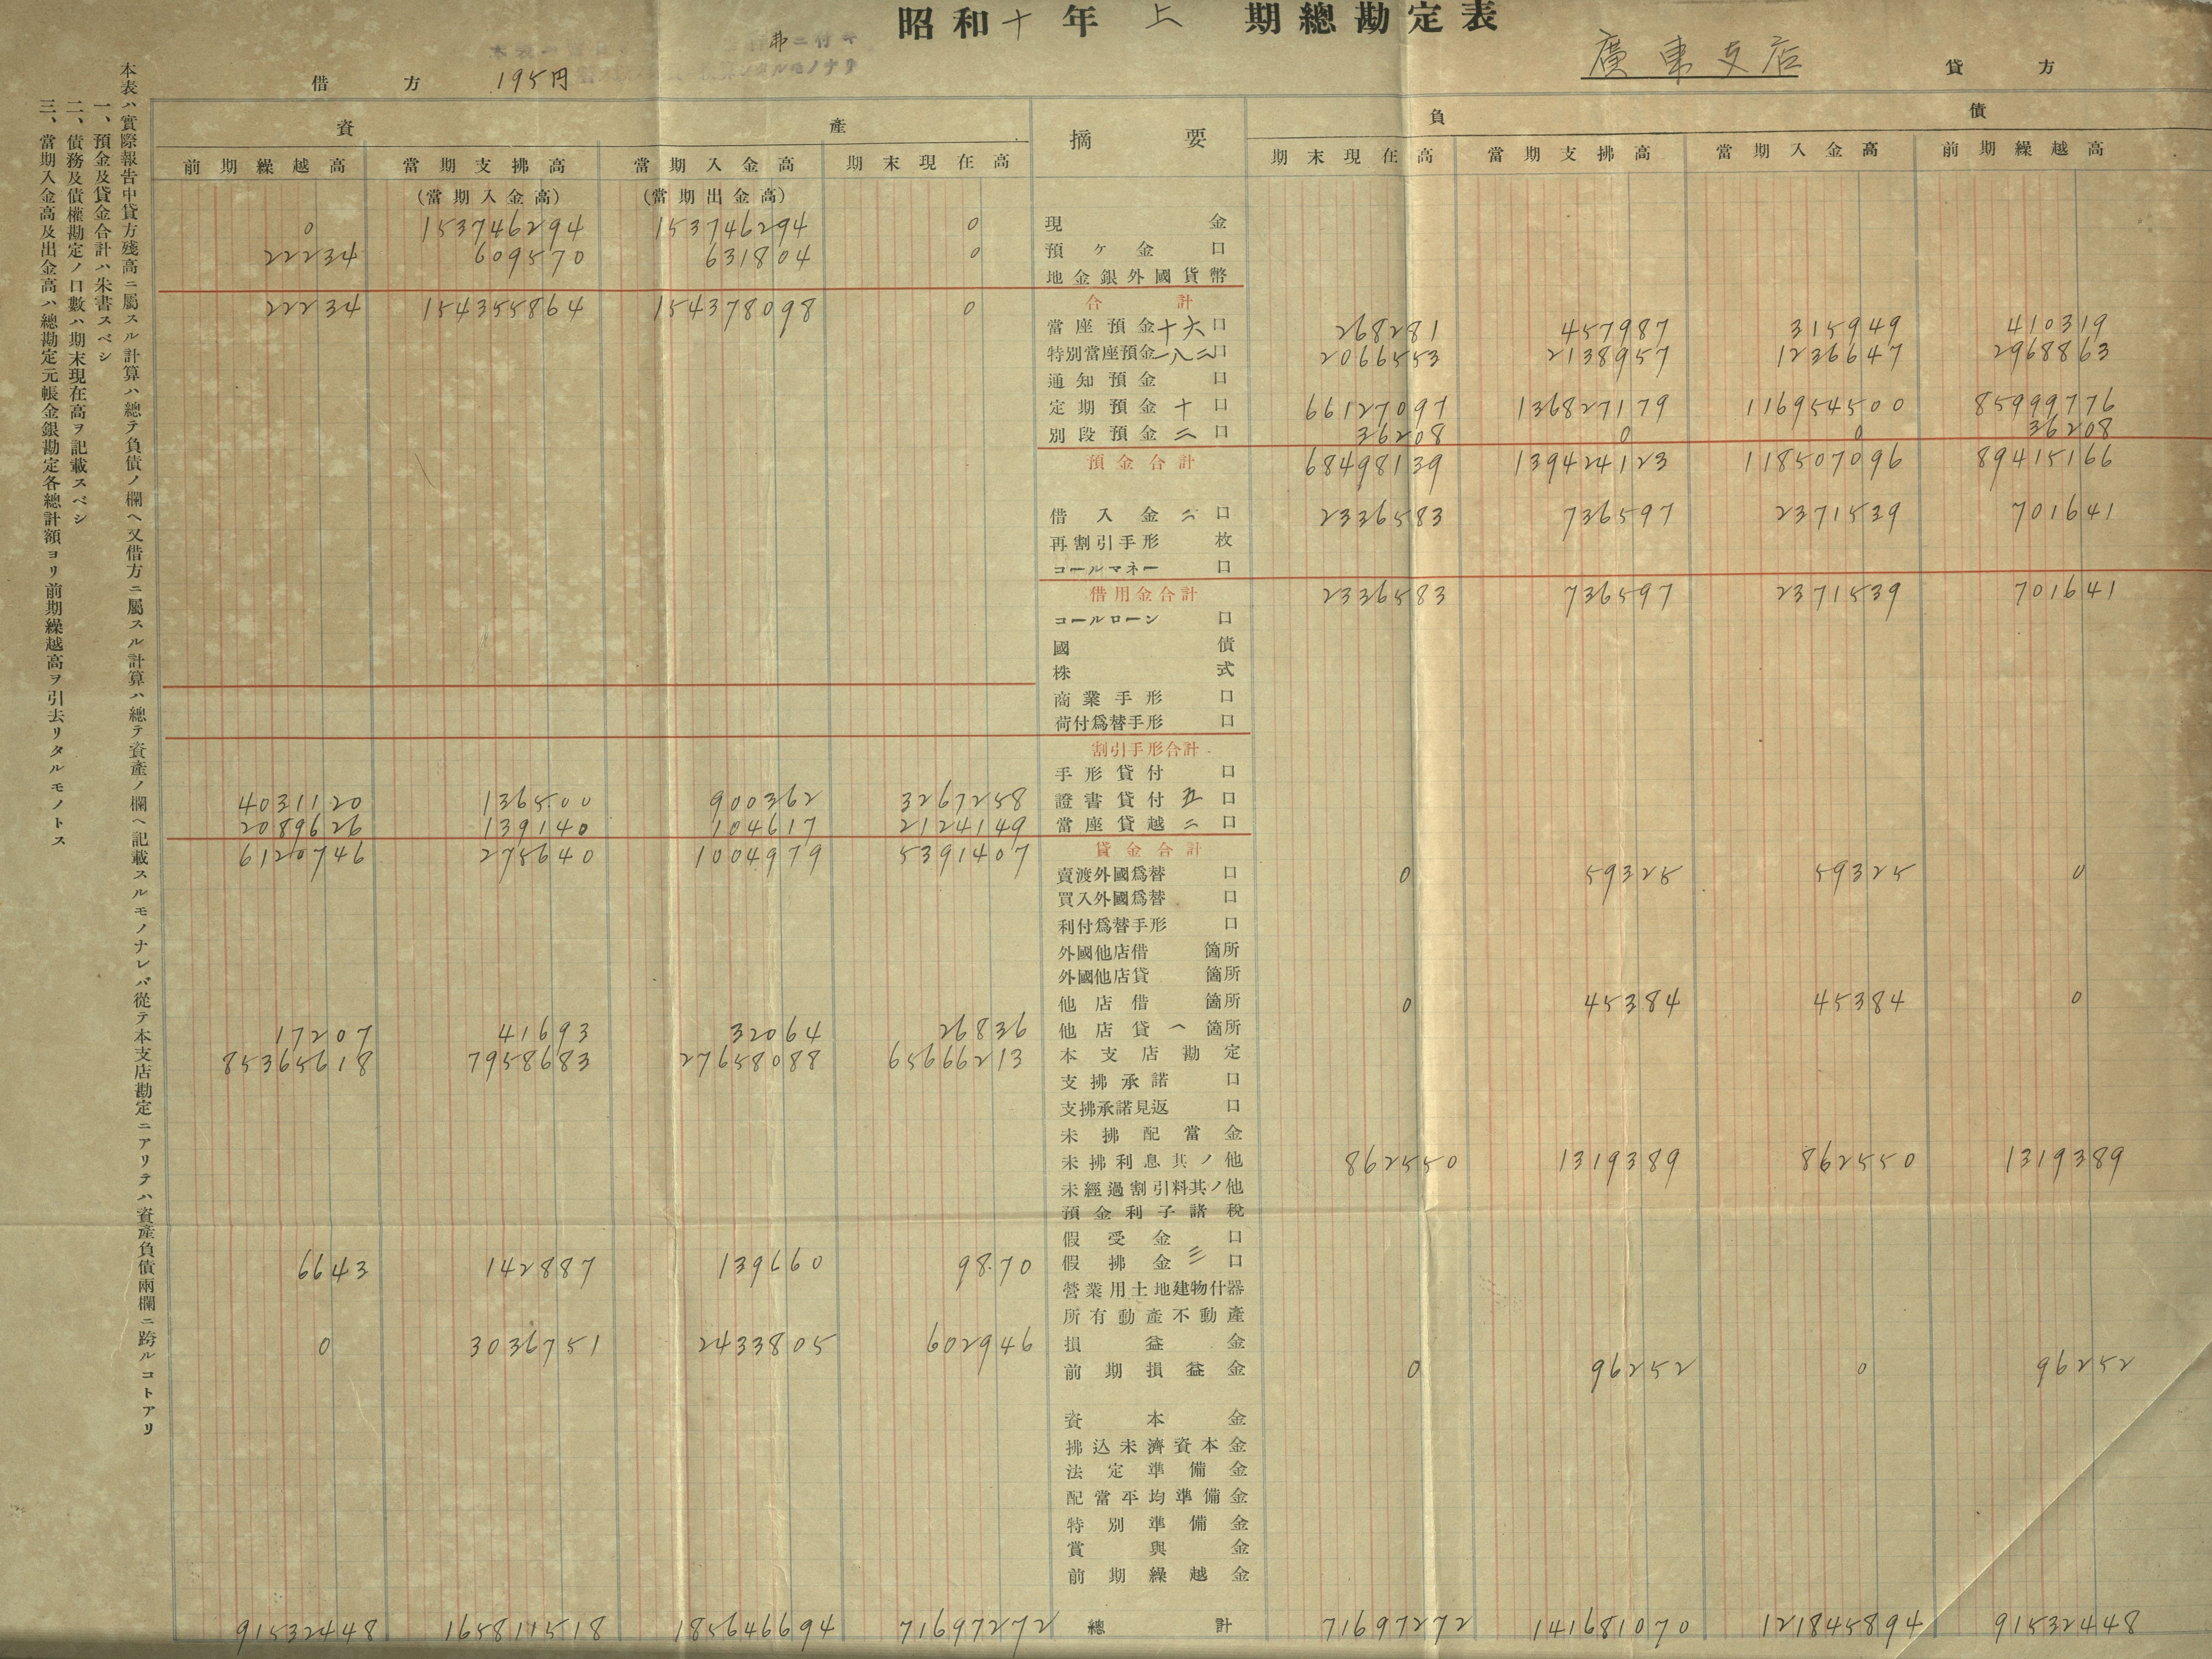 昭和十年上期總勘定表
弗
ニ付キ
廣東支店
借方 195円 貸方
資產 摘要 負債
前期繰越高 當期支拂高 當期入金高 期末現在高 期末現在高 當期支拂高 當期入金高 前期繰越高
(當期入金高) (當期出金高)
0 153746294 153746294 0 現金
22234 609570 631804 0 預ケ金 口
地金銀外國貨幣
22234 154355864 154378098 0 合計
當座預金 十六 口 268281 457987 315949 410319
特別當座預金 一八二 口 2066553 2138957 1236647 2968863
通知預金 口
定期預金 十 口 66127097 136827179 116954500 85999776
別段預金 二 口 36208 0 0 36208
預金合計 68498139 139424123 118507096 89415166
借入金 二 口 2336583 736597 2371539 701641
再割引手形 枚
コールマネー 口
借用金合計 2336583 736597 2371539 701641
コールローン 口
國債
株式
商業手形 口
荷付爲替手形 口
割引手形合計
手形貸付 口
4031120 136500 900362 3267258 證書貸付 五 口
2089626 139140 104617 2124149 當座貸越 二 口
6120746 275640 1004979 5391407 貸金合計
賣渡外國爲替 口 0 59325 59325 0
買入外國爲替 口
利付爲替手形 口
外國他店借 箇所
外國他店貸 箇所
他店借 箇所 0 45384 45384 0
17207 41693 32064 26836 他店貸 一 箇所
85365618 7958683 27658088 65666213 本支店勘定
支拂承諾 口
支拂承諾見返 口
未拂配當金
未拂利息其ノ他 862550 1319389 862550 1319389
未經過割引料其ノ他
預金利子諸稅
假受金 口
6643 142887 139660 9870 假拂金 三 口
營業用土地建物什器
所有動產不動產
0 3036751 2433805 602946 損益金
前期損益金 0 96252 0 96252
資本金
拂込未濟資本金
法定準備金
配當平均準備金
特別準備金
賞與金
前期繰越金
91532448 165811518 185646694 71697272 總計 71697272 141681070 121845894 91532448
本表ハ實際報告中貸方殘高ニ屬スル計算ハ總テ負債ノ欄ヘ又借方ニ屬スル計算ハ總テ資產ノ欄ヘ記載スルモノナレバ從テ本支店勘定ニアリテハ資產負債兩欄ニ跨ルコトアリ
一、預金及貸金合計ハ朱書スベシ
二、債務及債權勘定ノ口數ハ期末現在高ヲ記載スベシ
三、當期入金高及出金高ハ總勘定元帳金銀勘定各總計額ヨリ前期繰越高ヲ引去リタルモノトス